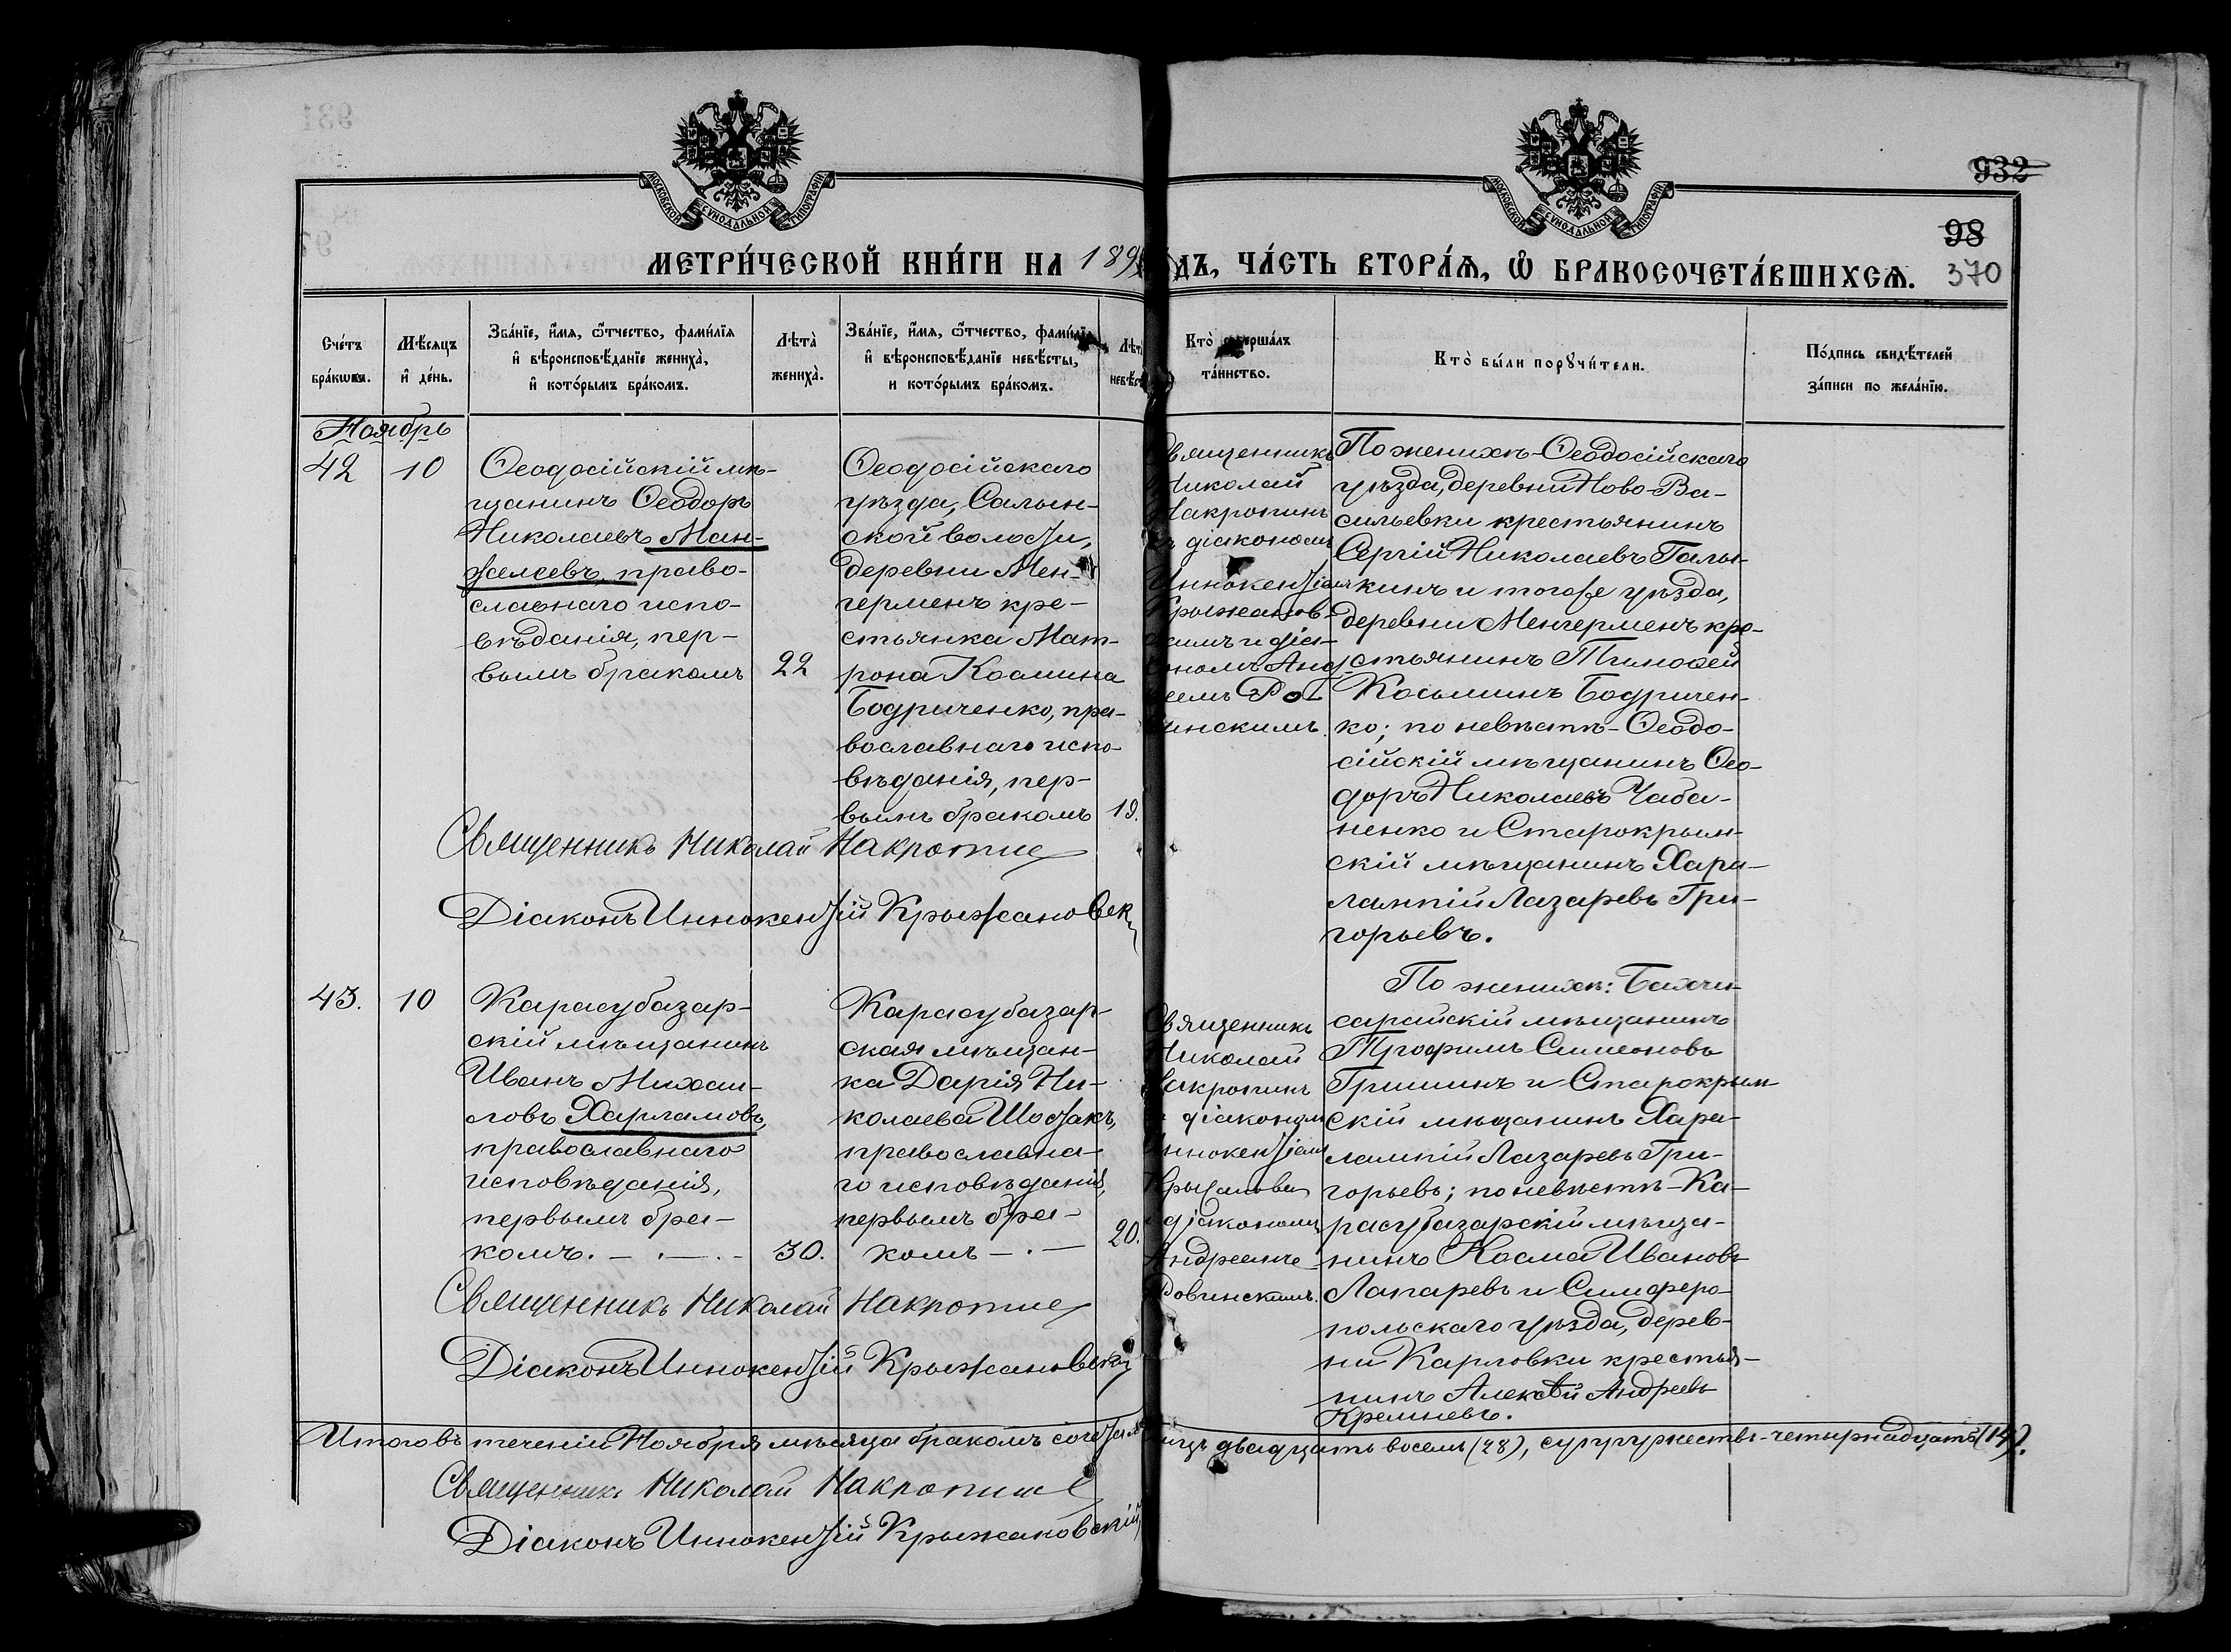 932
98
370
МОСКОВСКОЙ СѴНОДАЛЬНОЙ ТИПОГРАФІИ
МОСКОВСКОЙ СѴНОДАЛЬНОЙ ТИПОГРАФІИ
МЕТРИ́ЧЕСКОЙ КНИ́ГИ НА 189
ДЪ, ЧА́СТЬ ВТОРА́Ѧ, Ѽ БРАКОСОЧЕТА́ВШИХСѦ.
Сче́тъ
бра́кѡвъ.
Мѣ́сяцъ
и҆ де́нь.
Зва́нїе, и҆́мя, ѻ҆́тчество, фами́лїя
и҆ вѣроисповѣ́данїе жениха̀,
и҆ кото́рымъ бра́комъ.
Лѣта̀
жениха̀.
Зва́нїе, и҆́мя, ѻ҆́тчество, фами́лїя
и҆ вѣроисповѣ́данїе невѣ́сты,
и кото́рымъ бра́комъ.
Лѣт
невѣс
Кто̀ соверша́лъ
та́инство.
Кто̀ бы́ли порꙋчи́тели.
По́дпись свидѣ́телей
за́писи по жела́нїю.
Ноябрь
42
10
Ѳеодосійскій мѣ-
щанинъ Ѳеодоръ
Николаевъ Ман-
желеевъ, право-
славнаго испо-
вѣданія, пер-
вымъ бракомъ
22
Ѳеодосійскаго
уѣзда, Салын-
ской волости,
деревни Мен-
герменъ кре-
стьянка Мат-
рона Космина
Бодриченко, пра-
вославнаго испо-
вѣданія, пер-
вымъ бракомъ
19.
вященникъ
Николай
Накропинъ
ъ діакономъ
Иннокентіемъ
Крыжанов-
скимъ и діа-
кономъ Анд
реемъ Ро
винскимъ.
По женихѣ - Ѳеодосійскаго
уѣзда, деревни Ново-Ва-
сильевки крестьянинъ
Сергій Николаевъ Галы-
кинъ и тогоже уѣзда,
деревни Менгерменъ кре-
стьянинъ Тимоѳей
Косьминъ Бодричен-
ко; по невѣстѣ - Ѳеодо-
сійскій мѣщанинъ Ѳео-
доръ Николаевъ Чаба-
ненко и Старокрым-
скій мѣщанинъ Хара-
лампій Лазаревъ Гри-
горьевъ.
Священникъ Николай Накропин
Діаконъ Иннокентій Крыжановск
43.
10
Карасубазар-
скій мѣщанинъ
Иванъ Михаи-
ловъ Харламовъ,
православнаго
исповѣданія,
первымъ бра-
комъ. - . - . -
30.
Карасубазар-
ская мѣщан-
ка Дарія Ни-
колаева Шостакъ,
православна-
го исповѣданія,
первымъ бра-
комъ - . -
20.
вященникъ
Николай
Накропинъ
діакономъ
Иннокентіемъ
діакономъ
Андреемъ
Ровинскимъ.
По женихѣ: Бахчи-
сарайскій мѣщанинъ
Трофимъ Симеоновъ
Гришинъ и Старокрым
скій мѣщанинъ Хара-
лампій Лазаревъ Гри-
горьевъ; по невѣстѣ - Ка-
расубазарскій мѣща-
нинъ Косма Ивановъ
Лапаревъ и Симферо-
польскаго уѣзда, дерев-
ни Карловки крестья-
нинъ Алексѣй Андреевъ
Кремневъ.
Священникъ Николай Накропин
Діаконъ Иннокентій Крыжановск
Итого въ теченіи Ноября мѣсяца бракомъ сочета
лицъ двадцать восемь (28), супружествъ - четырнадцать (14).
Священникъ Николай Накропин
Діаконъ Иннокентій Крыжановскій